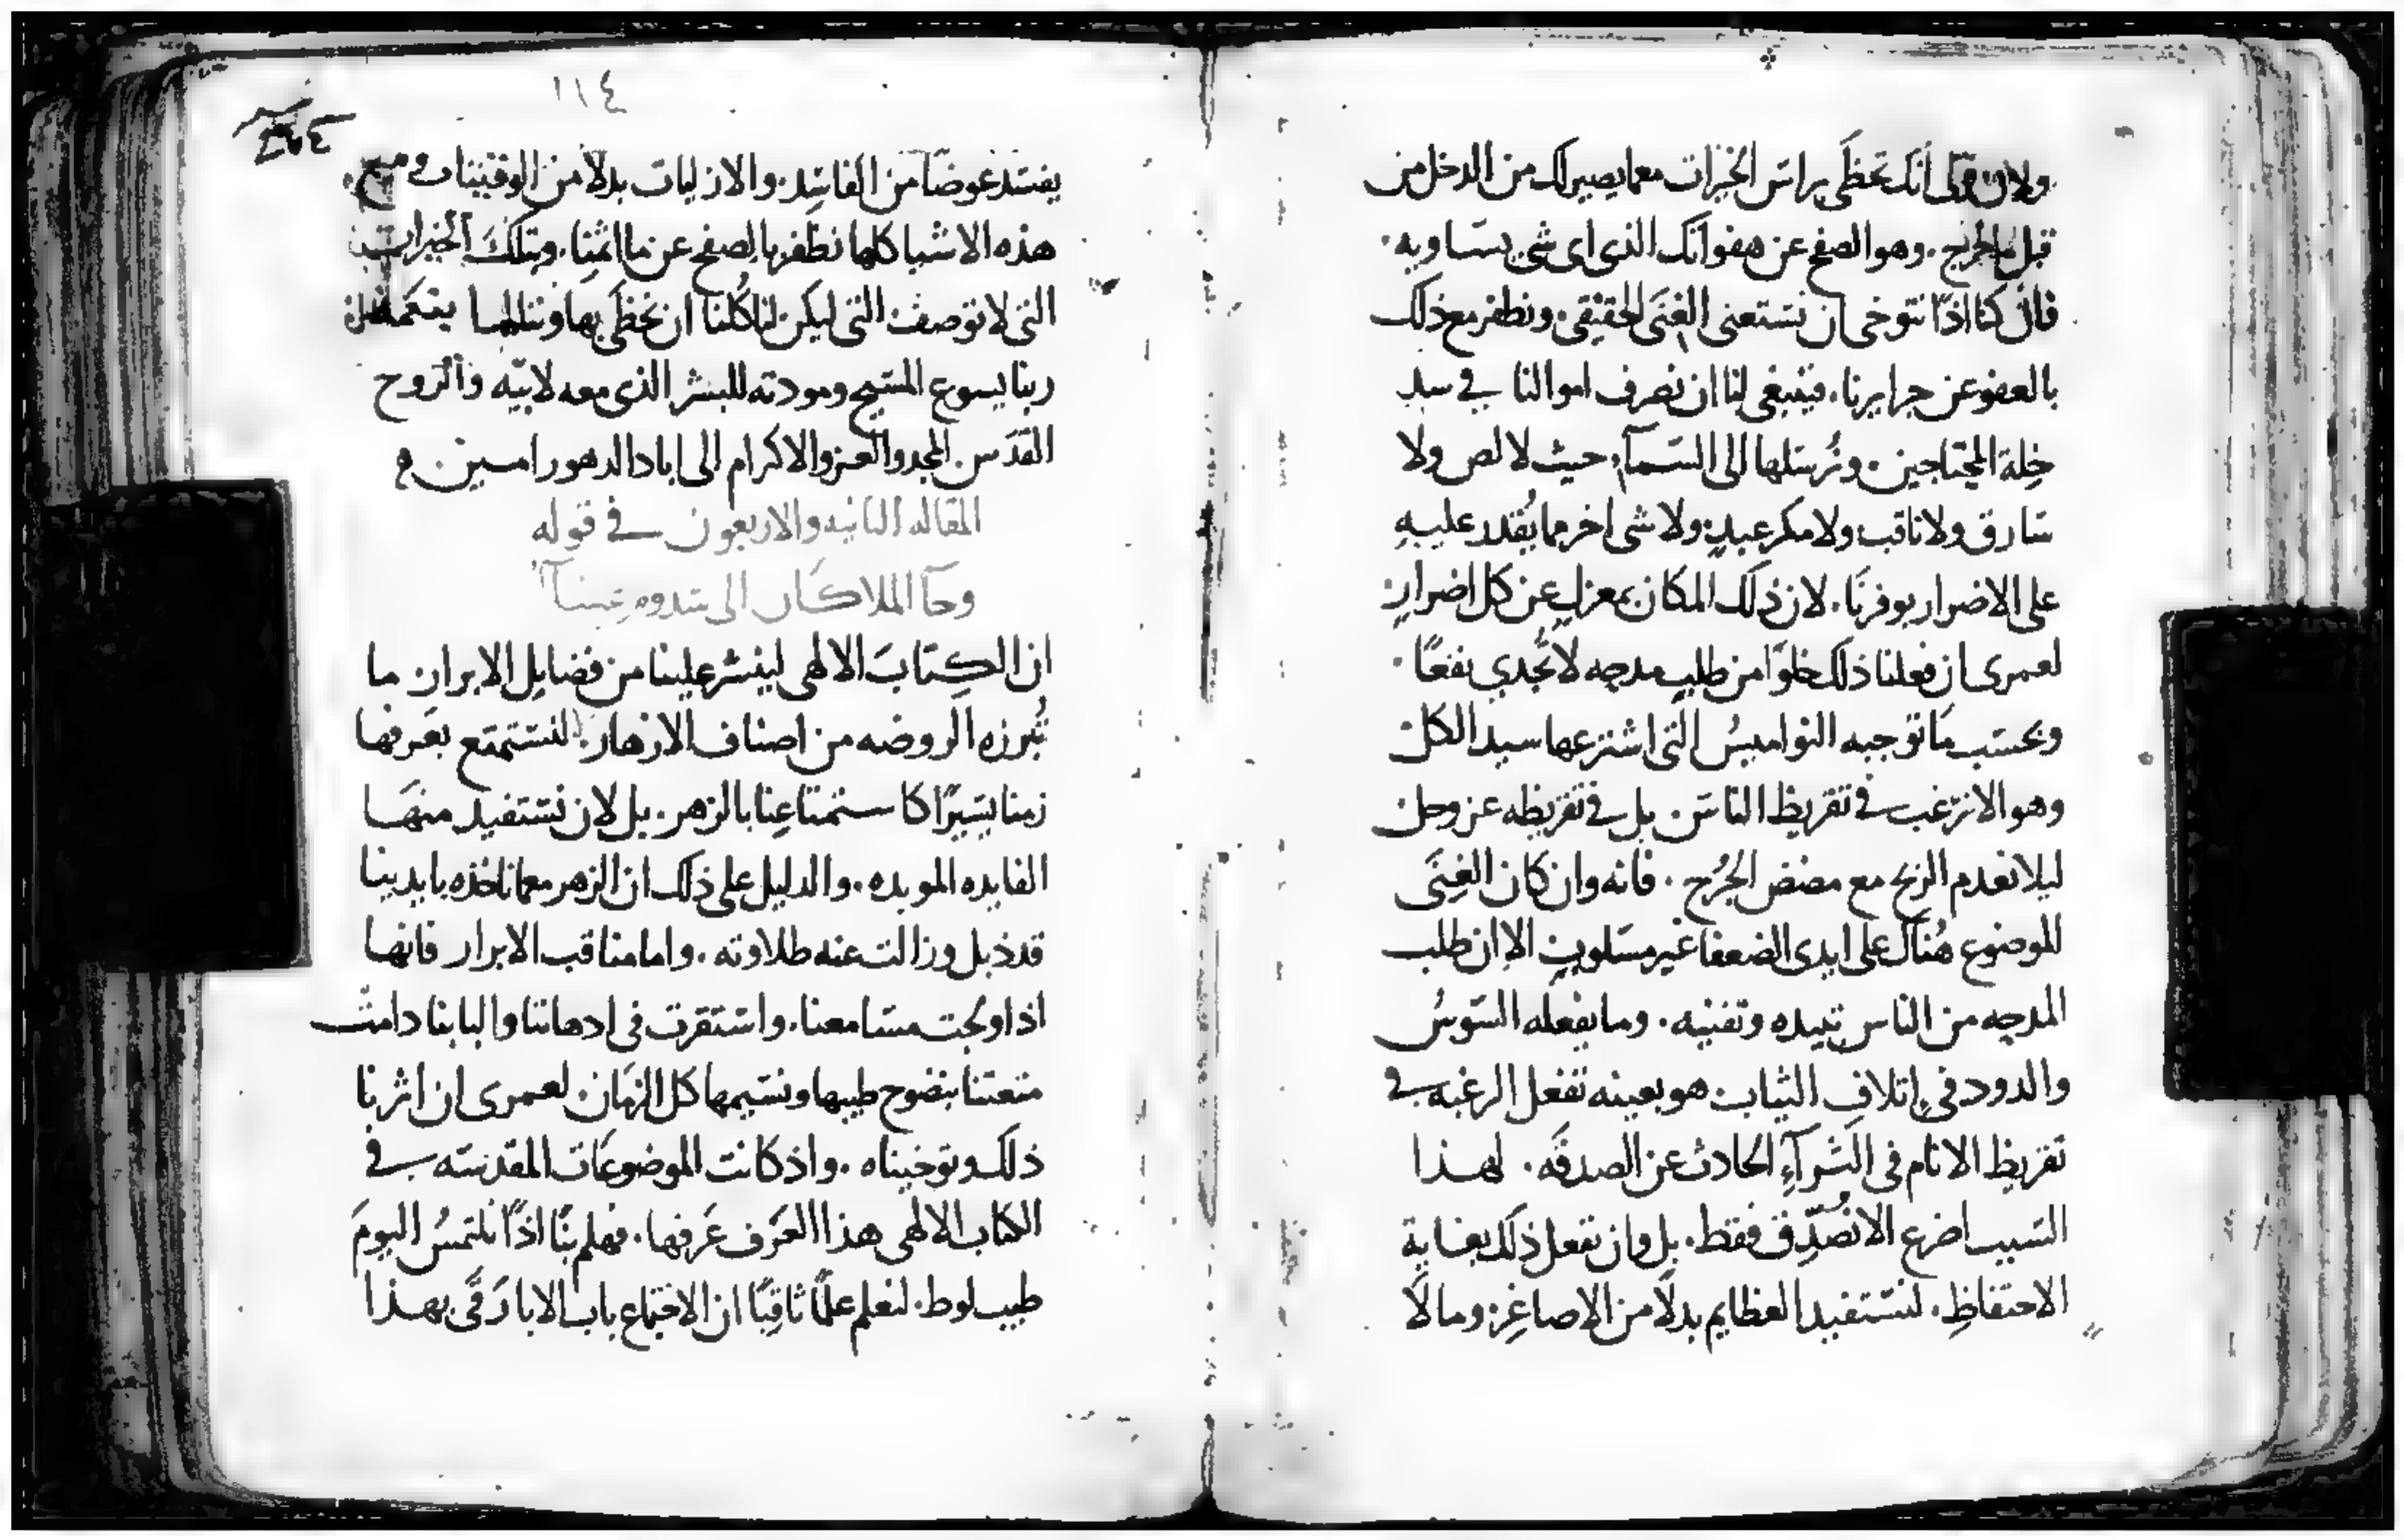 ولان مولى أنك تحظى براس الخيرات معما يصير لك من الدخل من
قبل ما خرج. وهو الصفح عن هفواتك الذى اى شى يساويه.
فان كنا اذًا نتوخى ان نستغنى الغنَى الحقيقى. ونظفر مع ذلك
بالعفو عن جرايرنا. فينبغى لنا ان نصرف اموالنا في سد
خِلة المحتاجين. ونُرسلها الى السمآء. حيث لا لص ولا
سارق ولا ناقب ولا مكر عبيدٍ ولا شى اخر مما يُقدر عليهِ
على الاضرار بوفرنا. لان ذلك المكان بمعزلٍ عن كل اضرارٍ
لعمرى ان فعلنا ذلك خلوًا من طلبِ مدحِه لا تُجدي نفعًا.
وبحسب ما توجبه النواميسُ التى اشترعها سيد الكل
وهو الا نرغب في تقريظ الناس. بل في تقريظه عز وجل
ليلا نعدم الربح مع مضض الجُرح. فانه وان كان الغِنَى
الموضوع هُناك على ايدى الضعفا غير مسلوبٍ الا ان طلب
المدحه من الناس تبيده وتفنيه. وما يفعله السّوسُ
والدود في إتلافِ الثياب هو بعينه تفعل الرغبه في
تقريظ الانام فى الثرآءِ الحادث عن الصدقَه. لهذا
السبب اضرع الا نُصَدِّق فقط. بل وان نفعل ذلك بغاية
الاحتفاظِ. لنستفيد العظايم بدلًا من الاصاغِر. وما لا
١١٤
يفسد عوضًا من الفاسد. والازليات بدلًا من الوقتيات وميح
هذه الاشيا كلها نظفر بالصفح عن ما اثمنا. وبتلك الخيرات
التى لا توصف التى ليكن لنا كُلنا ان نحظَى بها وننالها بنعمة
ربنا يسوع المسيح ومودته للبشر الذى معه لابيّه والروح
القدس. المجد والعز والاكرام الى اباد الدهور امين
المقاله الثانيه والاربعون في قوله
وجآ الملاكان الى سدوم عِشآً
ان الكِتابَ الالهى لينثر علينا من فضايل الابرار ما
تُبرزه الروضه من اصناف الازهار. لنستمتع بعَرفها
زمنا يسيرًا كاستمتاعِنا بالزهر. بل لان نستفيد منهَا
الفايده الموبده. والدليل على ذلك ان الزهر معما ناخذه بايدينا
قد ذبل وزالت عنه طلاوته. واما مناقب الابرار فانها
اذا ولجت مسامعنا. واستقرت فى ادهاننا والبابنا دامت
متعتنا بنضوح طيبها ونسيمها كل الزمَان لعمرى ان اثرنا
ذلك وتوخيناه. واذ كانت الموضوعَات المقدسه في
الكتاب الالهى هذا العَرف عَرفها. فهلم بنًا اذًا نلتمسُ اليومَ
طيب لوط. لنعلم علمًا ثاقِبًا ان الاجتماع باب الابا رَقَّى بهذا